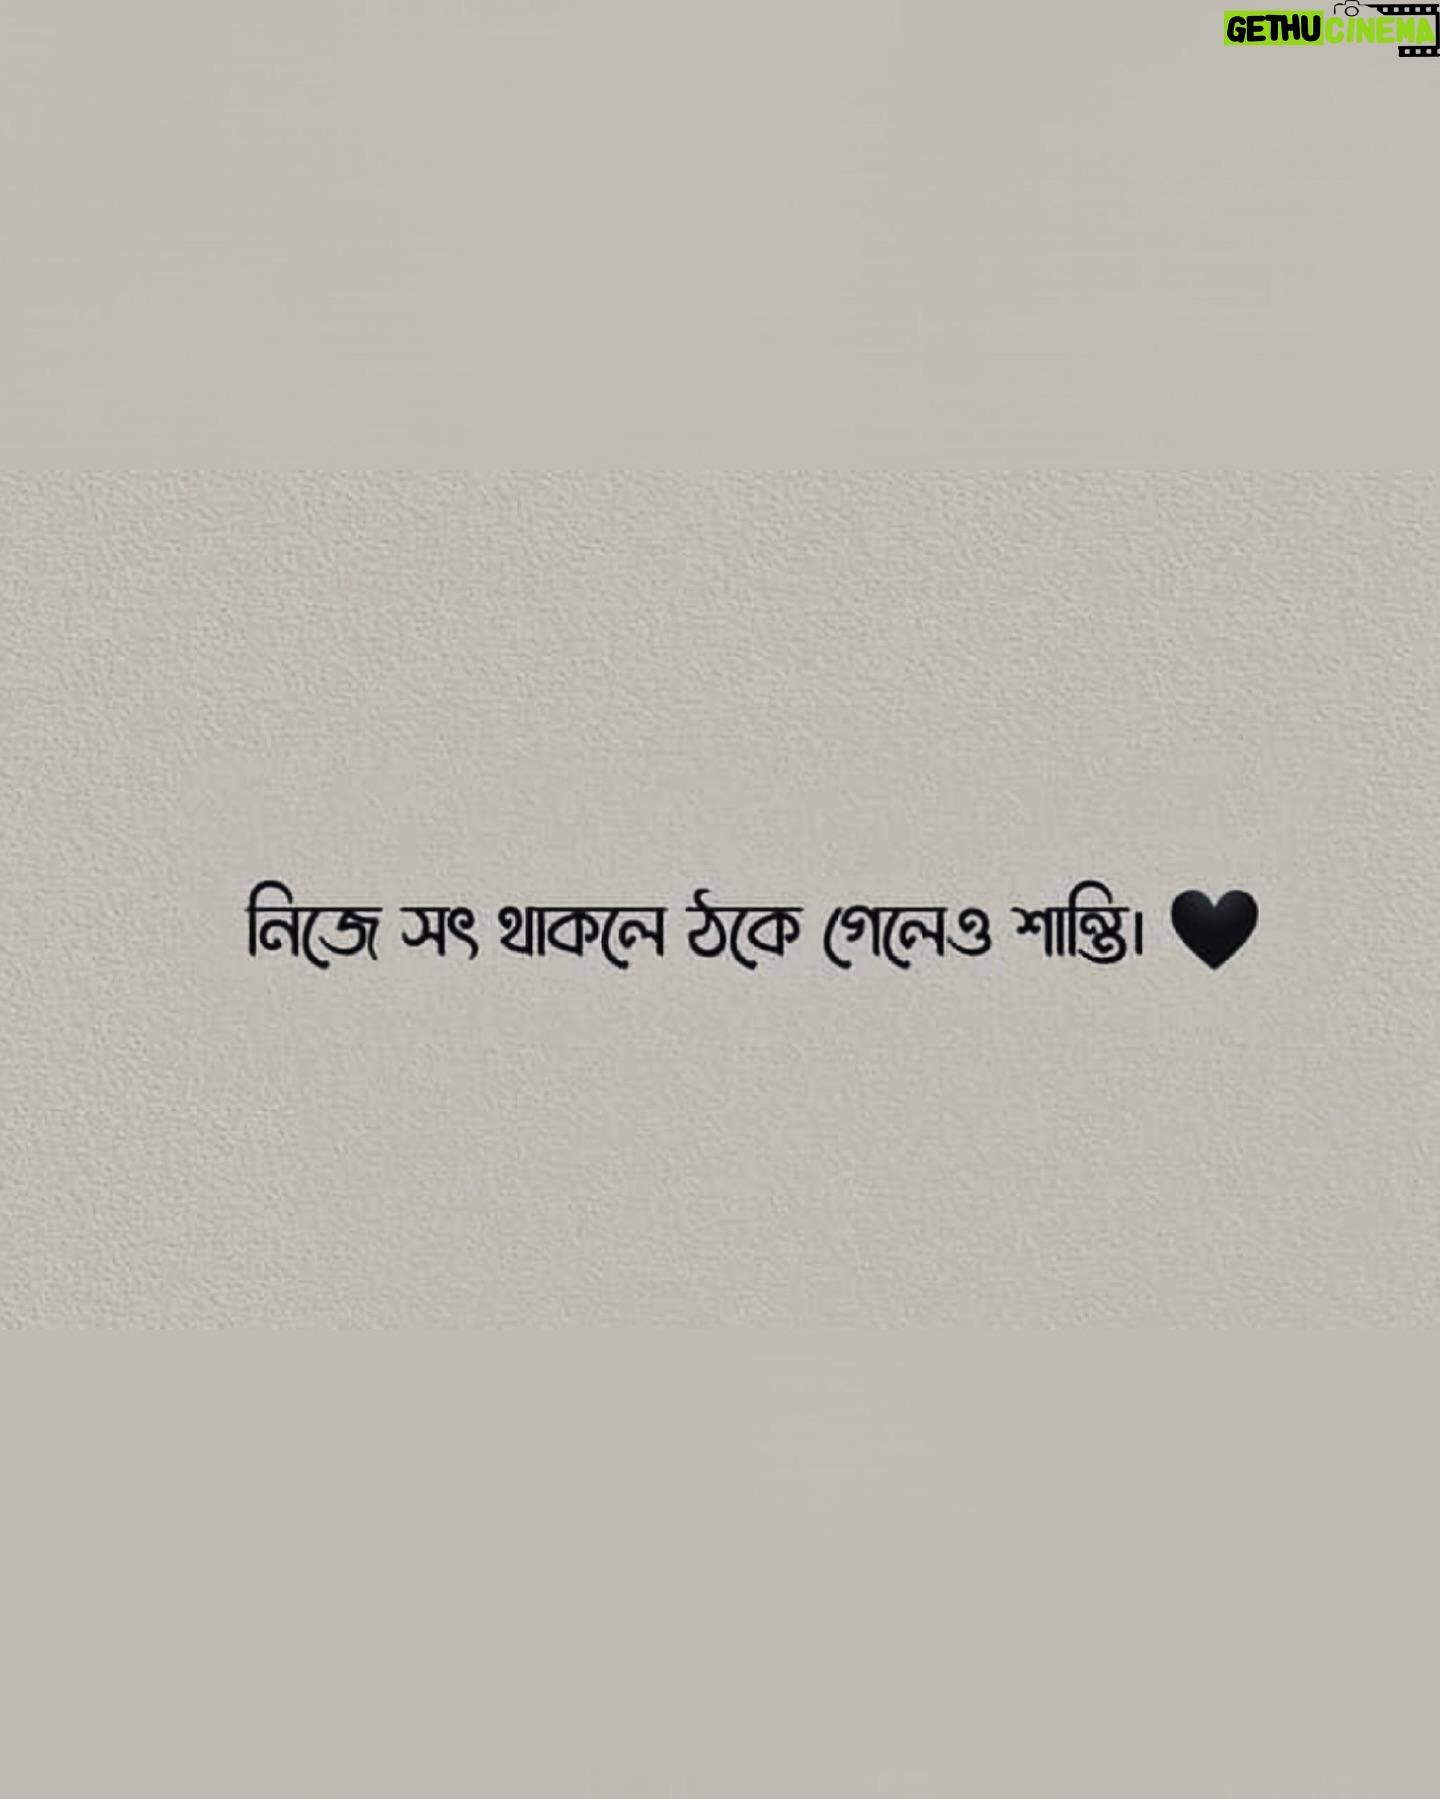 GETHUCINEMA
নিজে সৎ থাকলে ঠকে গেলেও শান্তি। 🖤